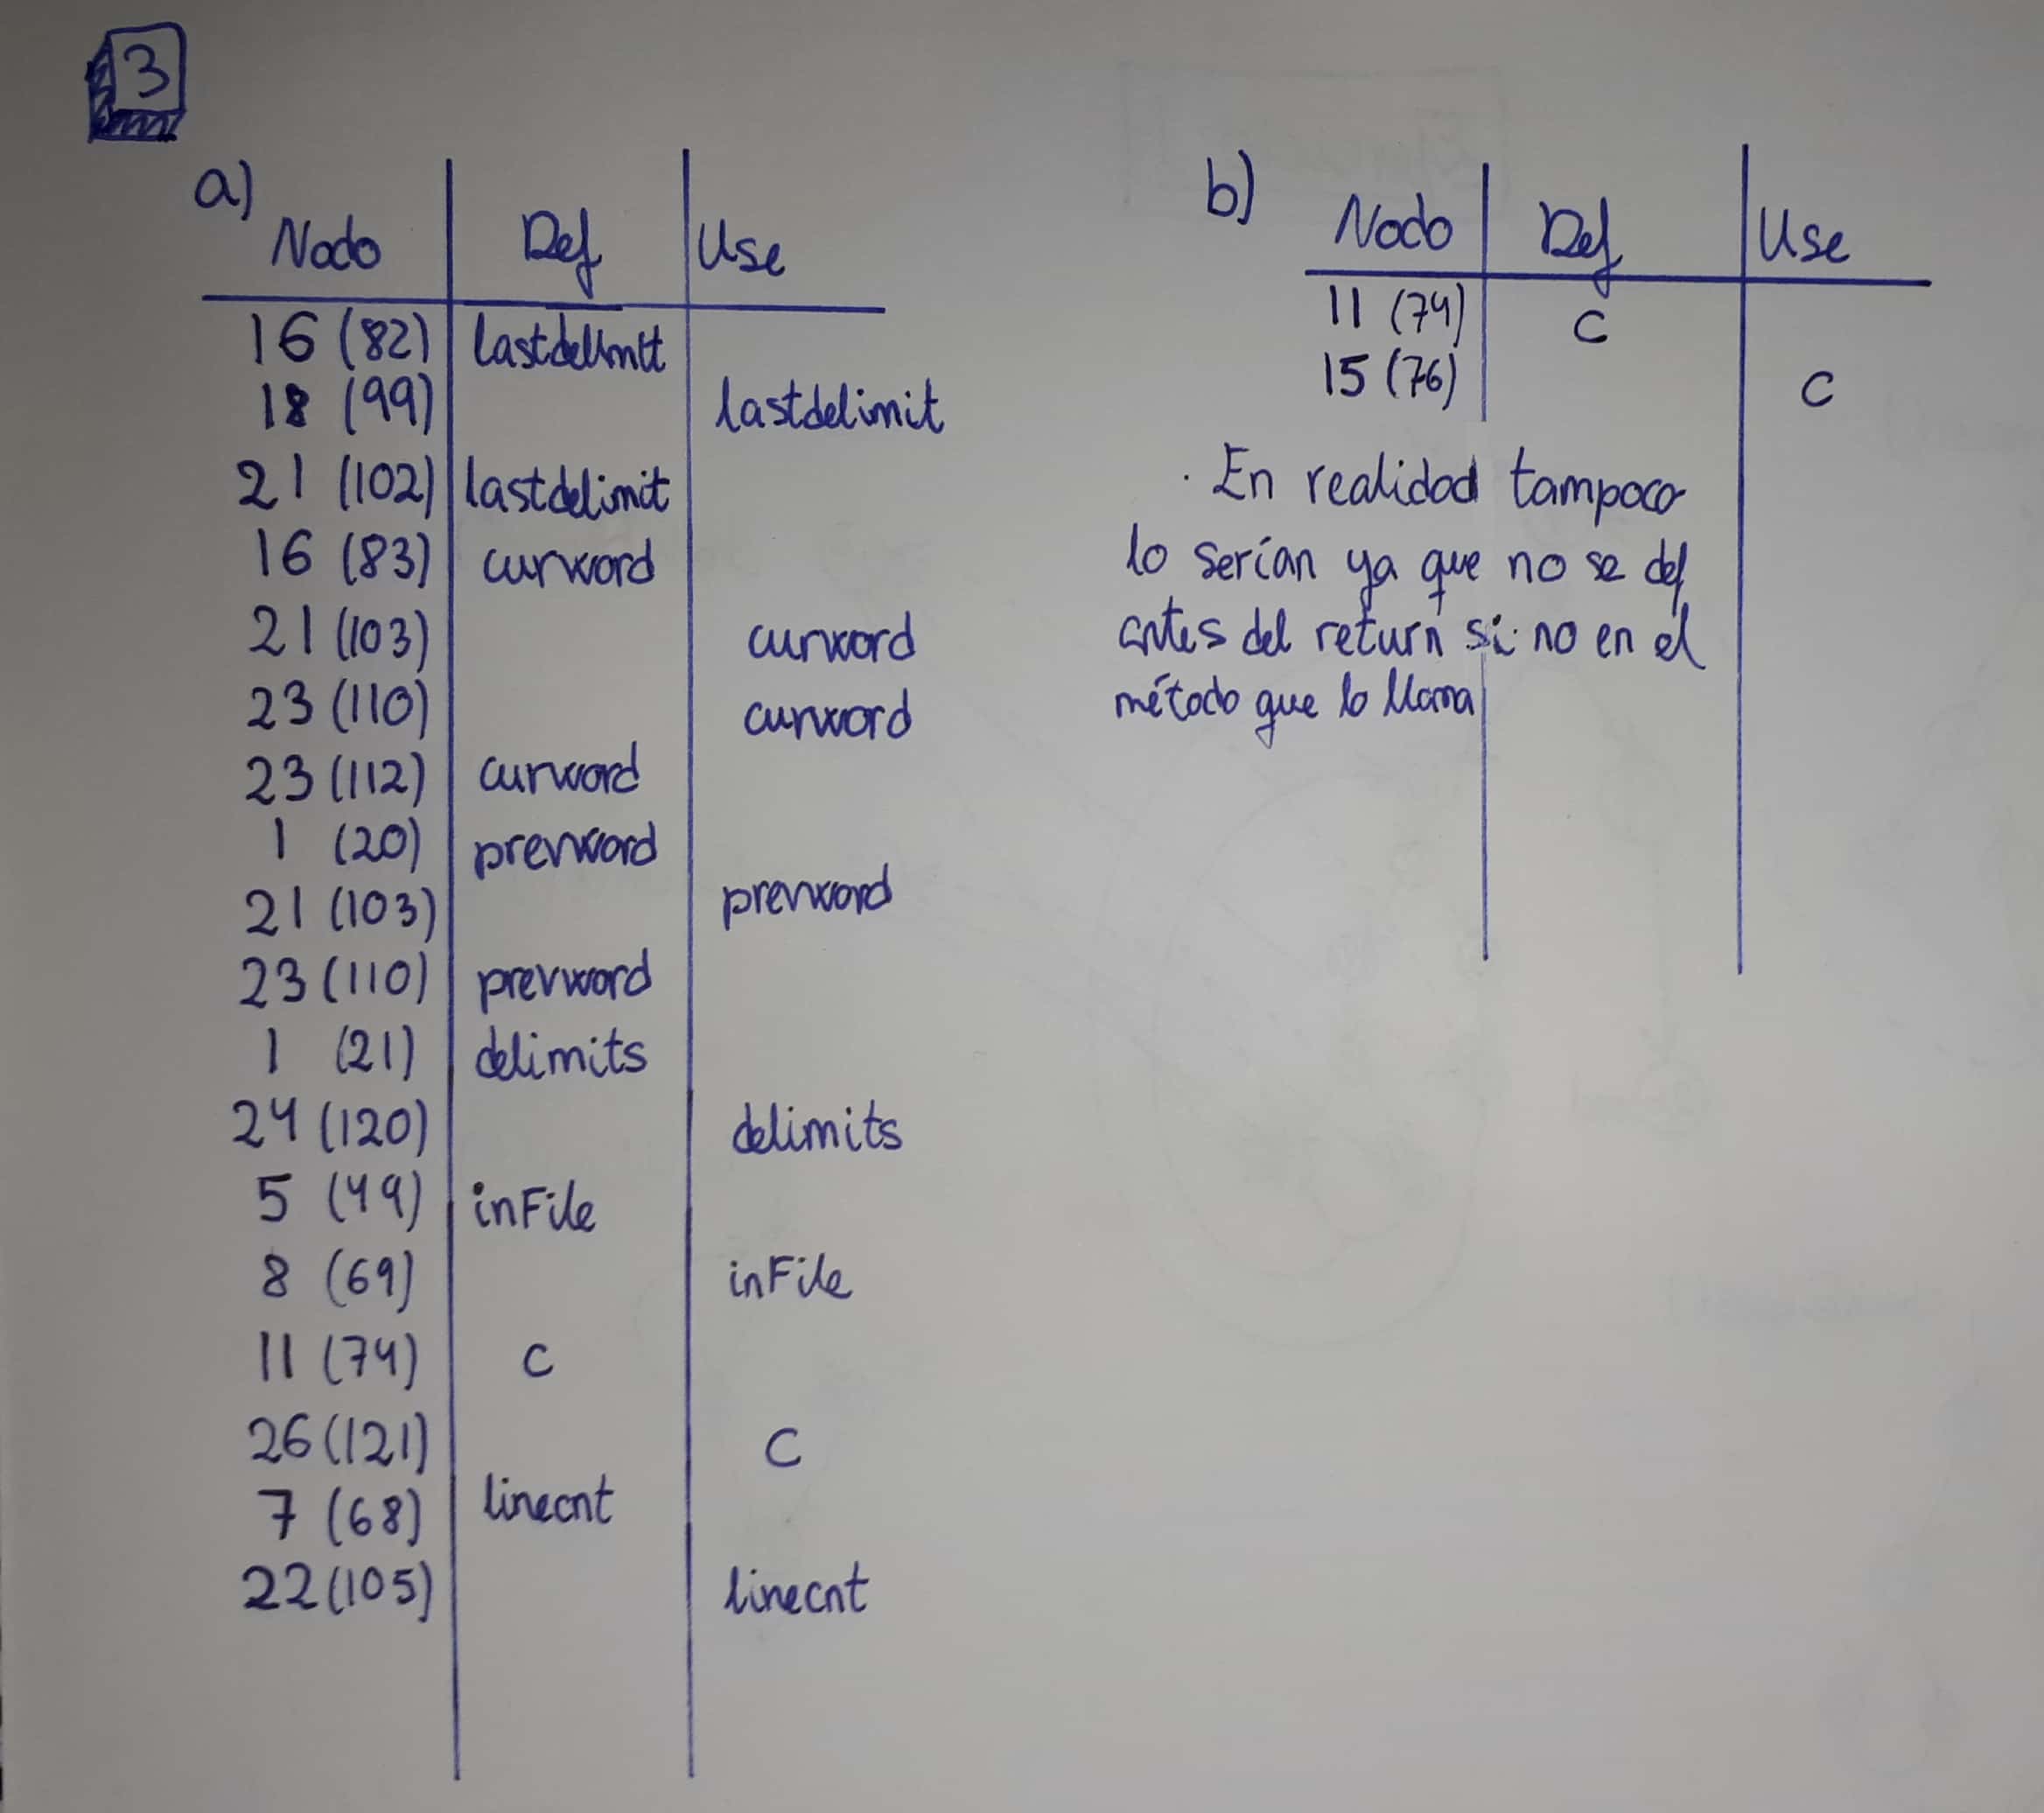 3
a)
Nodo Def Use
16 (82) lastdelimit
18 (99) lastdelimit
21 (102) lastdelimit
16 (83) curword
21 (103) curword
23 (110) curword
23 (112) curword
1 (20) prevword
21 (103) prevword
23 (110) prevword
1 (21) delimits
24 (120) delimits
5 (49) inFile
8 (69) inFile
11 (74) C
26 (121) C
7 (68) linecnt
22 (105) linecnt
b)
Nodo Def Use
11 (74) C
15 (76) C
· En realidad tampoco
lo serían ya que no se def
antes del return si no en el
método que lo llama